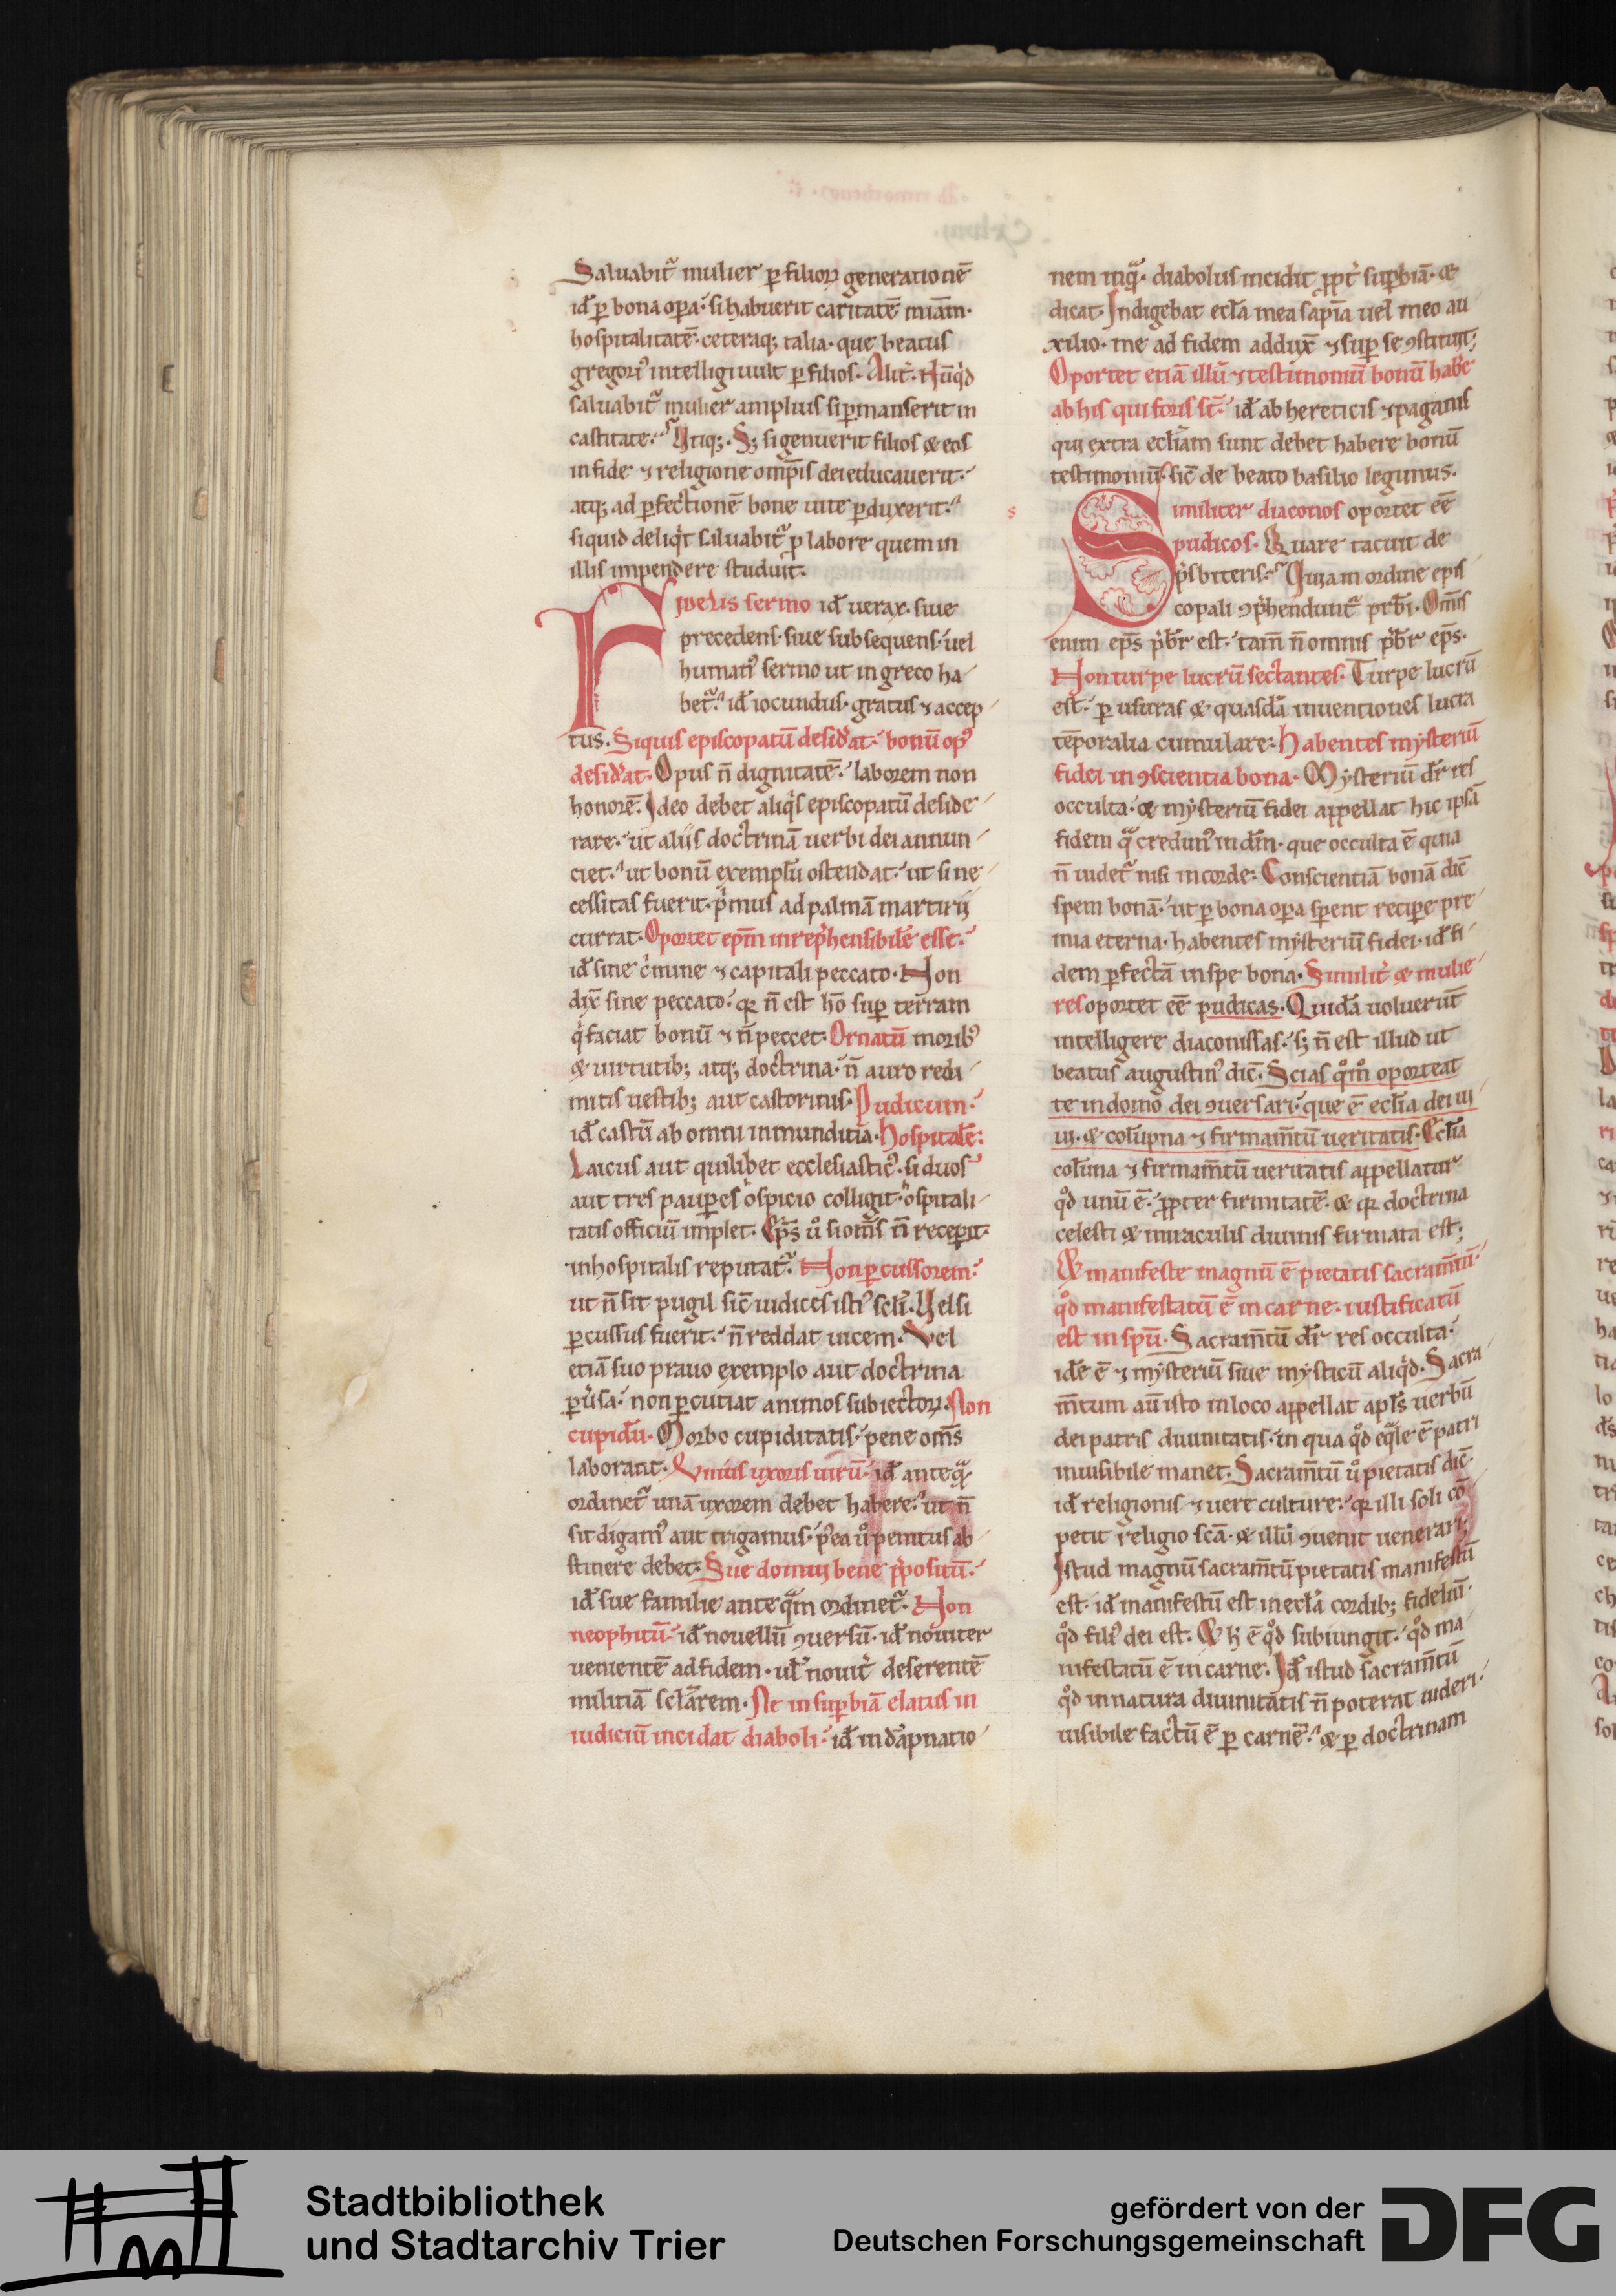 Saluabit᷑ mulier ꝑ filioꝝ generationē
id̄ ꝑ bona oꝑa. si habuerit caritatē mīam.
hospitalitatē. ceteraq; talia. que beatus
gregori᷒ intelligi uult ꝑ filios. Alit᷑. Nūqͥd
saluabit᷑ mulier amplius si ꝑmanserit in
castitate. Vtiq;. S; si genuerit filios & eos
in fide ⁊ religione omp̄is dei educauerit.
atq; ad ꝑfectionē bone uite ꝑduxerit.
siquid deliq̇t saluabit᷑ ꝑ labore quem in
illis impendere studuit.
Fidelis sermo id̄ uerax. siue
precedens. siue subsequens. uel
human᷒ sermo ut in greco ha
bet᷑. id̄ iocundus. gratus ⁊ accep
tus. Siquis episcopatū desid̾at. bonū op᷒
desid̾at. Opus n̄ dignitatē. laborem non
honorē. Ideo debet aliq̇s episcopatū deside
rare. ut aliis doctrinā uerbi dei annun
ciet. ut bonū exemplū ostendat. ut si ne
cessitas fuerit. ṗmus ad palmā martirij
currat. Oportet ep̄m inrep̄hensibilē esse.
id̄ sine c̍mine ⁊ capitali peccato. Non
dix̄ sine peccato. qr n̄ est hō suꝑ terram
q̇ faciat bonū ⁊ n̄ peccet. Ornatū morib᷒
& uirtutib; atq; doctrina. n̄ auro redi
mitis uestib; aut castorinis. Pudicum.
id̄ castū ab omni inmunditia. hospitalē.
Laicus aut quilibet ecclesiastic᷒. si duos
aut tres pauꝑes ospicio colligit. ospitali
tatis officiū implet. Ep̄s ů si om̄s n̄ receꝑit.
inhospitalis reputat᷑. Non ꝑcussorem.
ut n̄ sit pugil sic̄ iudices isti᷒ scl̄i. Vel si
ꝑcussus fuerit. n̄ reddat uicem. Vel
etiā suo prauo exemplo aut doctrina
ꝑu̾sa. non ꝑcutiat animos subiectoꝝ. Non
cupidū. Morbo cupiditatis. pene om̄s
laborant. Vnius uxoris uirū. id̄ anteq̄
ordinet᷑ unā uxorem debet habere. ut n̄
sit digam᷒ aut trigamus. p᷒ea ů penitus ab
stinere debet. Sue domui bene p̄positū.
id̄ sue familie ante q̄m ordinet᷑. Non
neophitū. id̄ nouellū ꝯuersū. id̄ nouiter
uenientē ad fidem. ul̄ nouit᷑ deserentē
militiā scl̄arem. Ne in suꝑbiā elatus in
iudiciū incidat diaboli. id̄ in dāpnatio
nem inq̄. diabolus incidit ꝓpt᷑ suꝑbiā. &
dicat. Indigebat eccl̄a mea sapīa uel meo au
xilio. me ad fidem addux̄ ⁊ suꝑ se ꝯstituit.
Oportet etiā illū ⁊ testimoniū bonū hab̾e
ab his qui foris st̄. id̄ ab hereticis ⁊ paganis
qui extra eccl̄iam sunt debet habere bonū
testimoniū. sic̄ de beato basilio legimus.
s
Similiter diaconos oportet eē
pudicos. Quare tacuit de
p̄sbiteris. Quia in ordine epis
copali ꝯp̄hendunt᷑ prb̄i. Om̄is
enim ep̄s p̄br est. tam̄ n̄ omnis p̄br ep̄s.
Non turpe lucrū sectantes. Turpe lucrū
est. ꝑ usuras & quasdā inuentiones lucra
tēporalia cumulare. Habentes mẏsteriū
fidei in ꝯscientia bona. Mẏsteriū dr̄ res
occulta. & mẏsteriū fidei appellat hic ipsā
fidem q̄ credim᷒ in dm̄. que occulta ē quia
n̄ uidet᷑ nisi in corde. Conscientiā bonā dic̄
spem bonā. ut ꝑ bona oꝑa sꝑent reciꝑe pre
mia eterna. habentes mẏsteriū fidei. id̄ fi
dem ꝑfectā in spe bona. Similit᷑ & mulie
res oportet eē pudicas. Quidā uoluerūt
intelligere diaconissas. s; n̄ est illud ut
beatus augustin᷒ dic̄. Scias q̊m̊ oporteat
te in domo dei ꝯuersari. que ē eccl̄ia dei ui
ui. & colūpna ⁊ firmam̄tū ueritatis. Eccl̄ia
colūna ⁊ firmam̄tū ueritatis appellatur
q̊d unū ē. ꝓpter firmitatē. & qr doctrina
celesti & miraculis diuinis firmata est.
Et manifeste magnū ē pietatis sacram̄tū.
q̊d manifestatū ē in carne. iustificatū
est in spū. Sacram̄tū dr̄ res occulta.
idē ē ⁊ mẏsteriū siue mẏsticū aliq̇d. Sacra
m̄tum aū isto in loco appellat apl̄s uerbū
dei patris diuinitatis. in qua q̊d eq̄le ē patri
inuisibile manet. Sacram̄tū ů pietatis dic̄.
id̄ religionis ⁊ uere culture. qr illi soli cō
petit religio scā. & illū ꝯuenit uenerari.
Istud magnū sacram̄tū pietatis manifestū
est. id̄ manifestū est in eccl̄a cordib; fideliū.
q̊d fili᷒ dei est. Et h̄ ē q̊d subiungit. q̊d ma
nifestatū ē in carne. Id̄ istud sacram̄tū
q̊d in natura diuinitatis n̄ poterat uideri.
uisibile factū ē ꝑ carnē. & ꝑ doctrinam
Stadtbibliothek
und Stadtarchiv Trier
gefördert von der
Deutschen Forschungsgemeinschaft
DFG